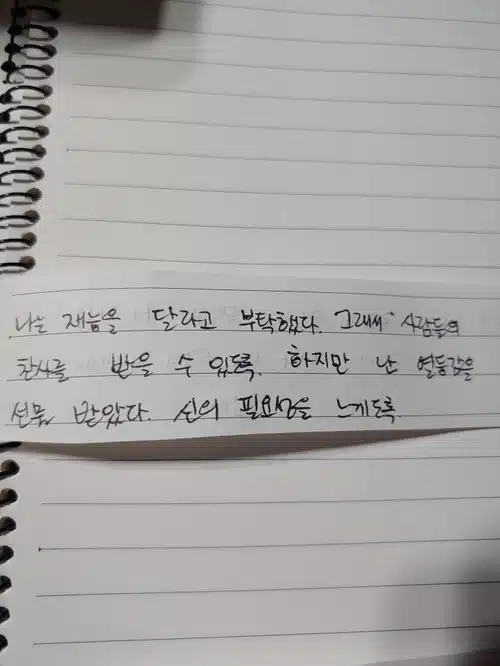 나는 재능을 달라고 부탁했다. 그래서 사람들의
찬사를 받을 수 있도록. 하지만 난 열등감을
선물 받았다. 신의 필요성을 느끼도록.